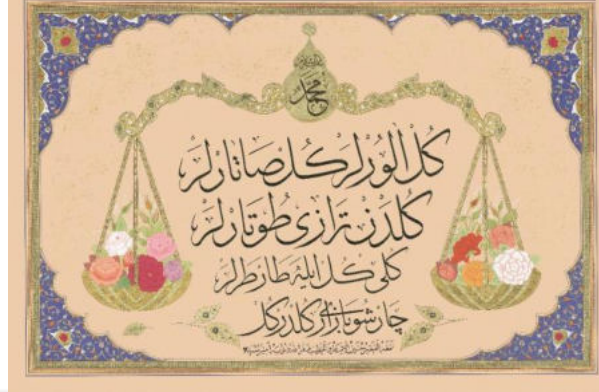 محمد
كل آلورلر كل صاتارلر
كلدن ترازى طوتارلر
كلى كل ايله طارطرلر
چارشو بازارى كلدر كل